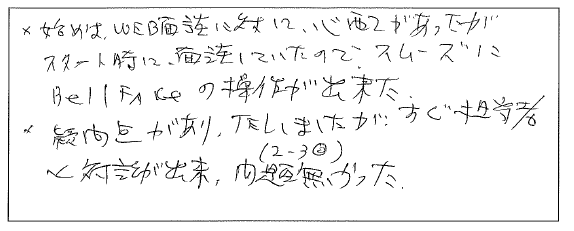 * 始めは、WEB面談に対して、心配があったが
スタート時に、面談していたので、スムーズに
Bell Faceの操作が出来た。
* 疑問点があり、TELしましたが、すぐ担当者
(2-3回)
と対話が出来、問題無かった。